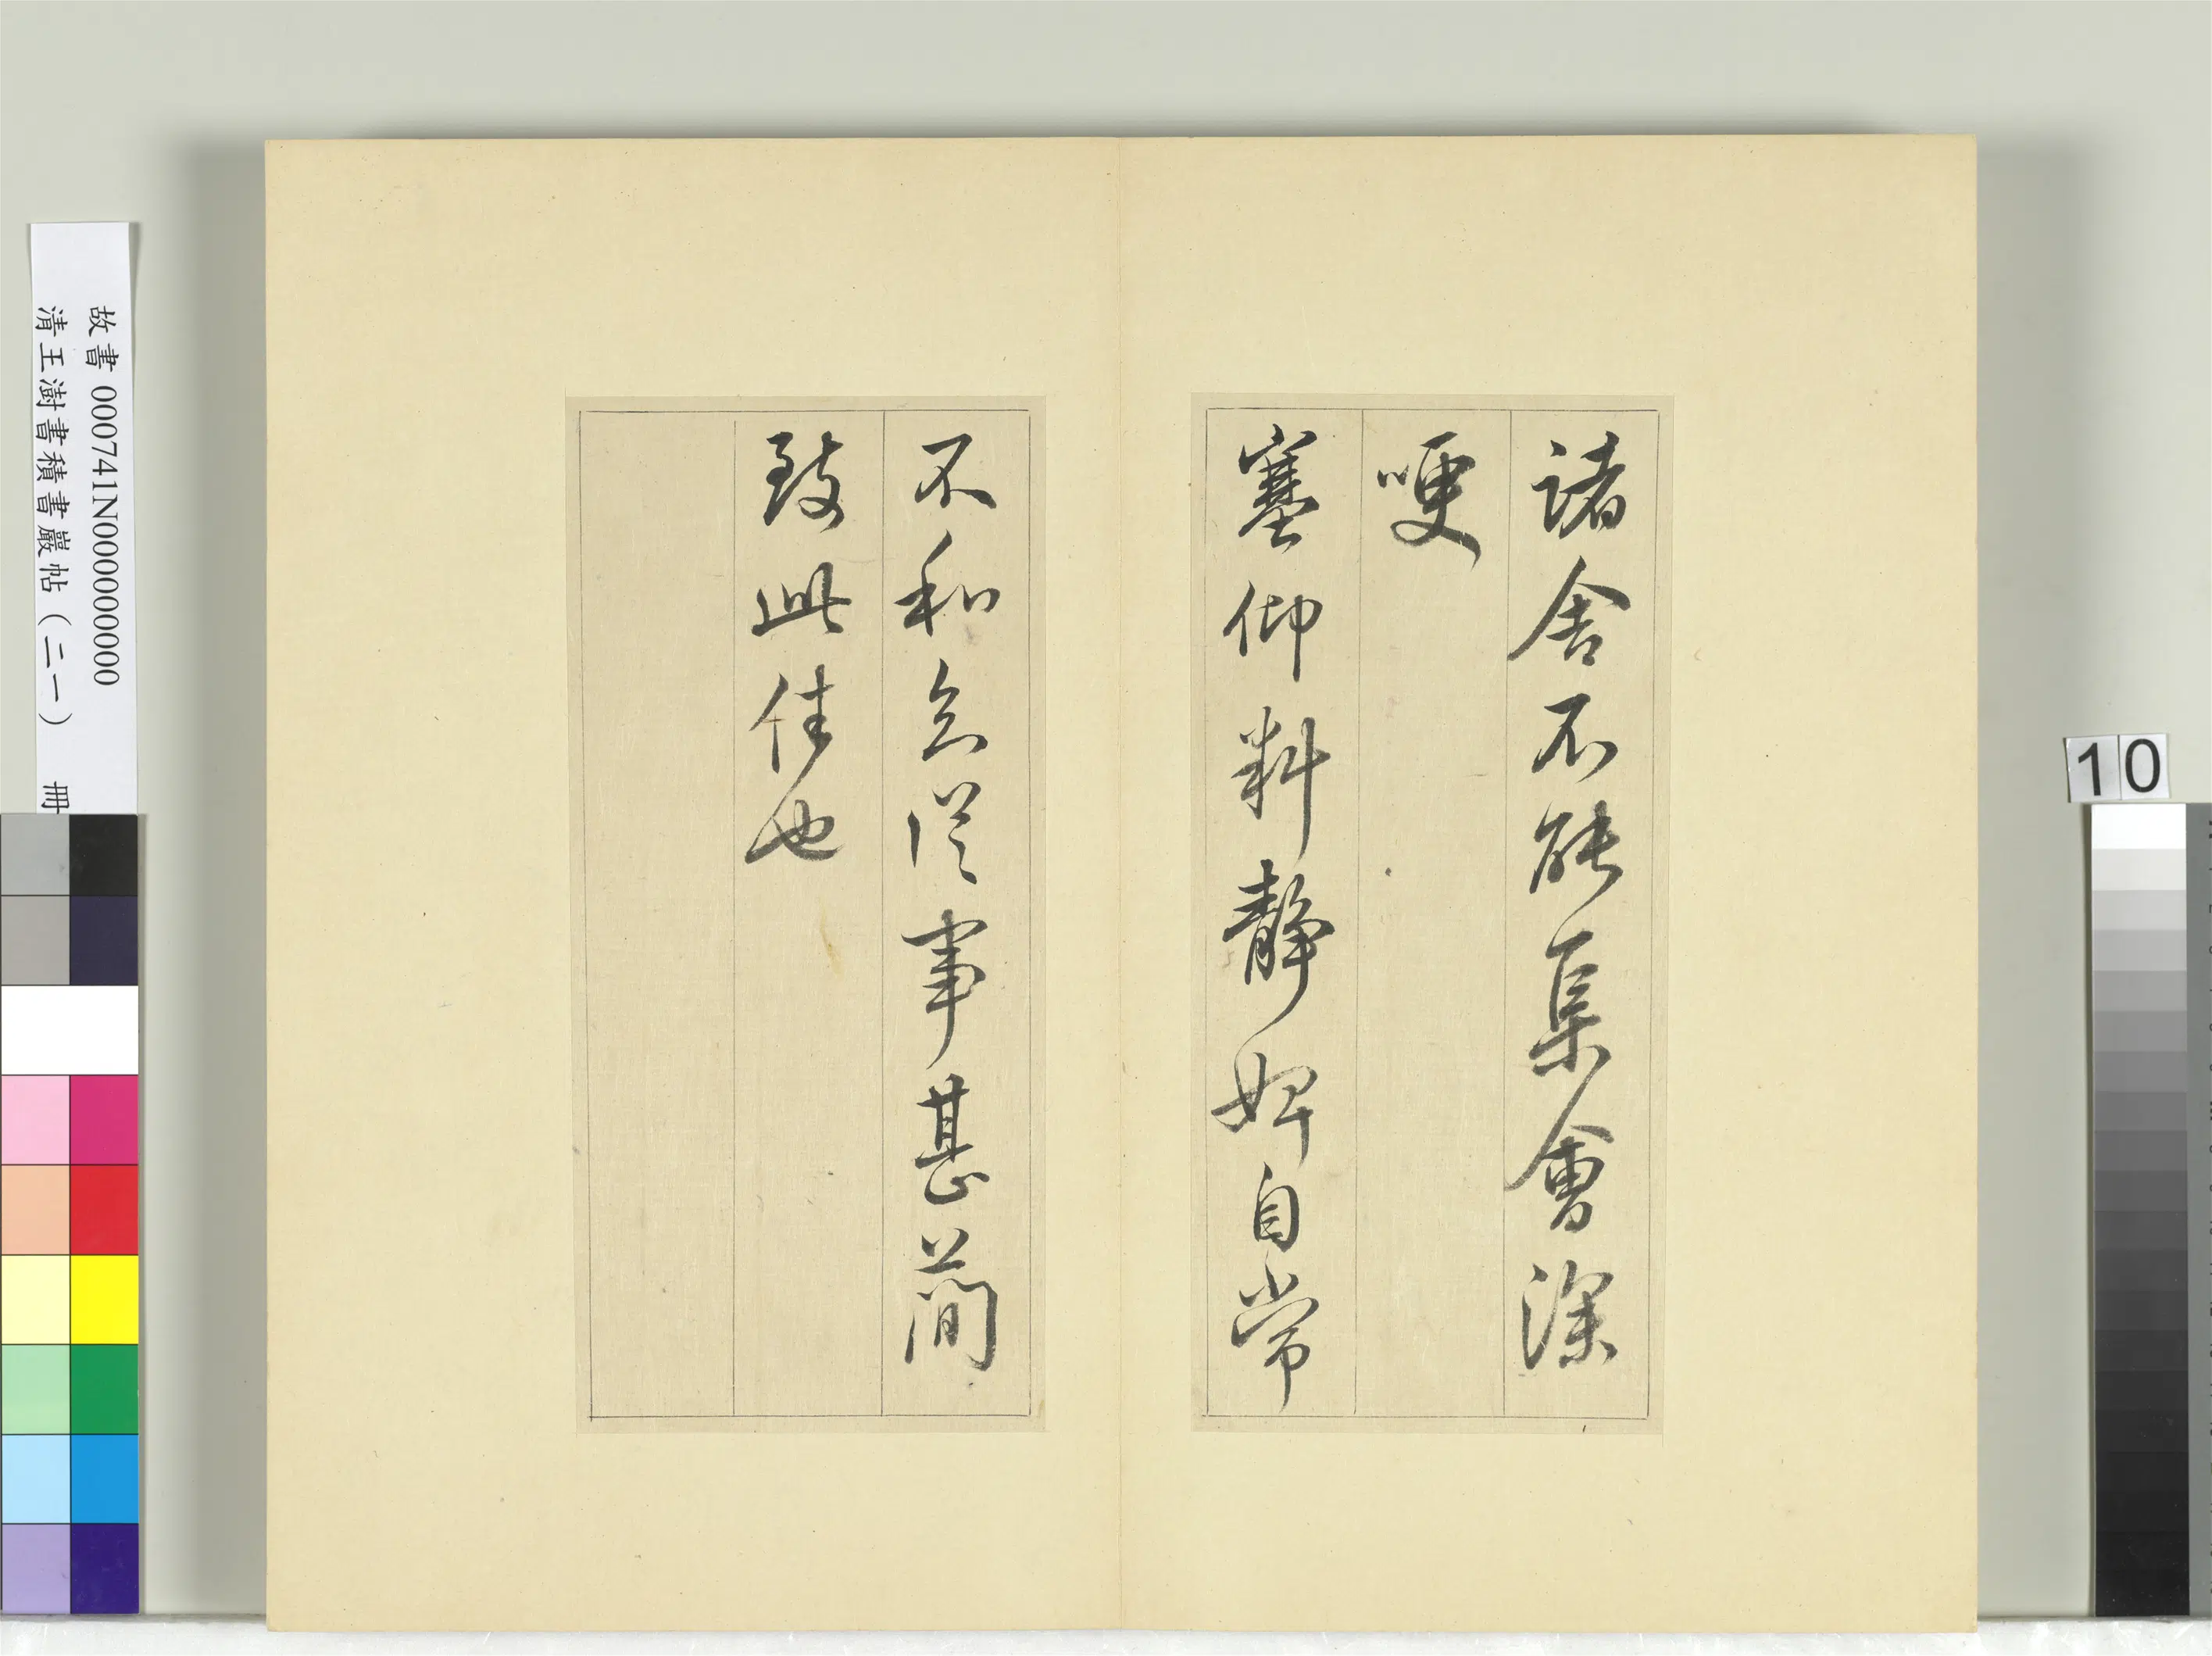 諸舍不能集會深
哽
塞仰料靜婢自常
不和念從事甚簡
致此佳也
故書 000741N000000000
清王澍書積書巖帖(二一) 冊
10